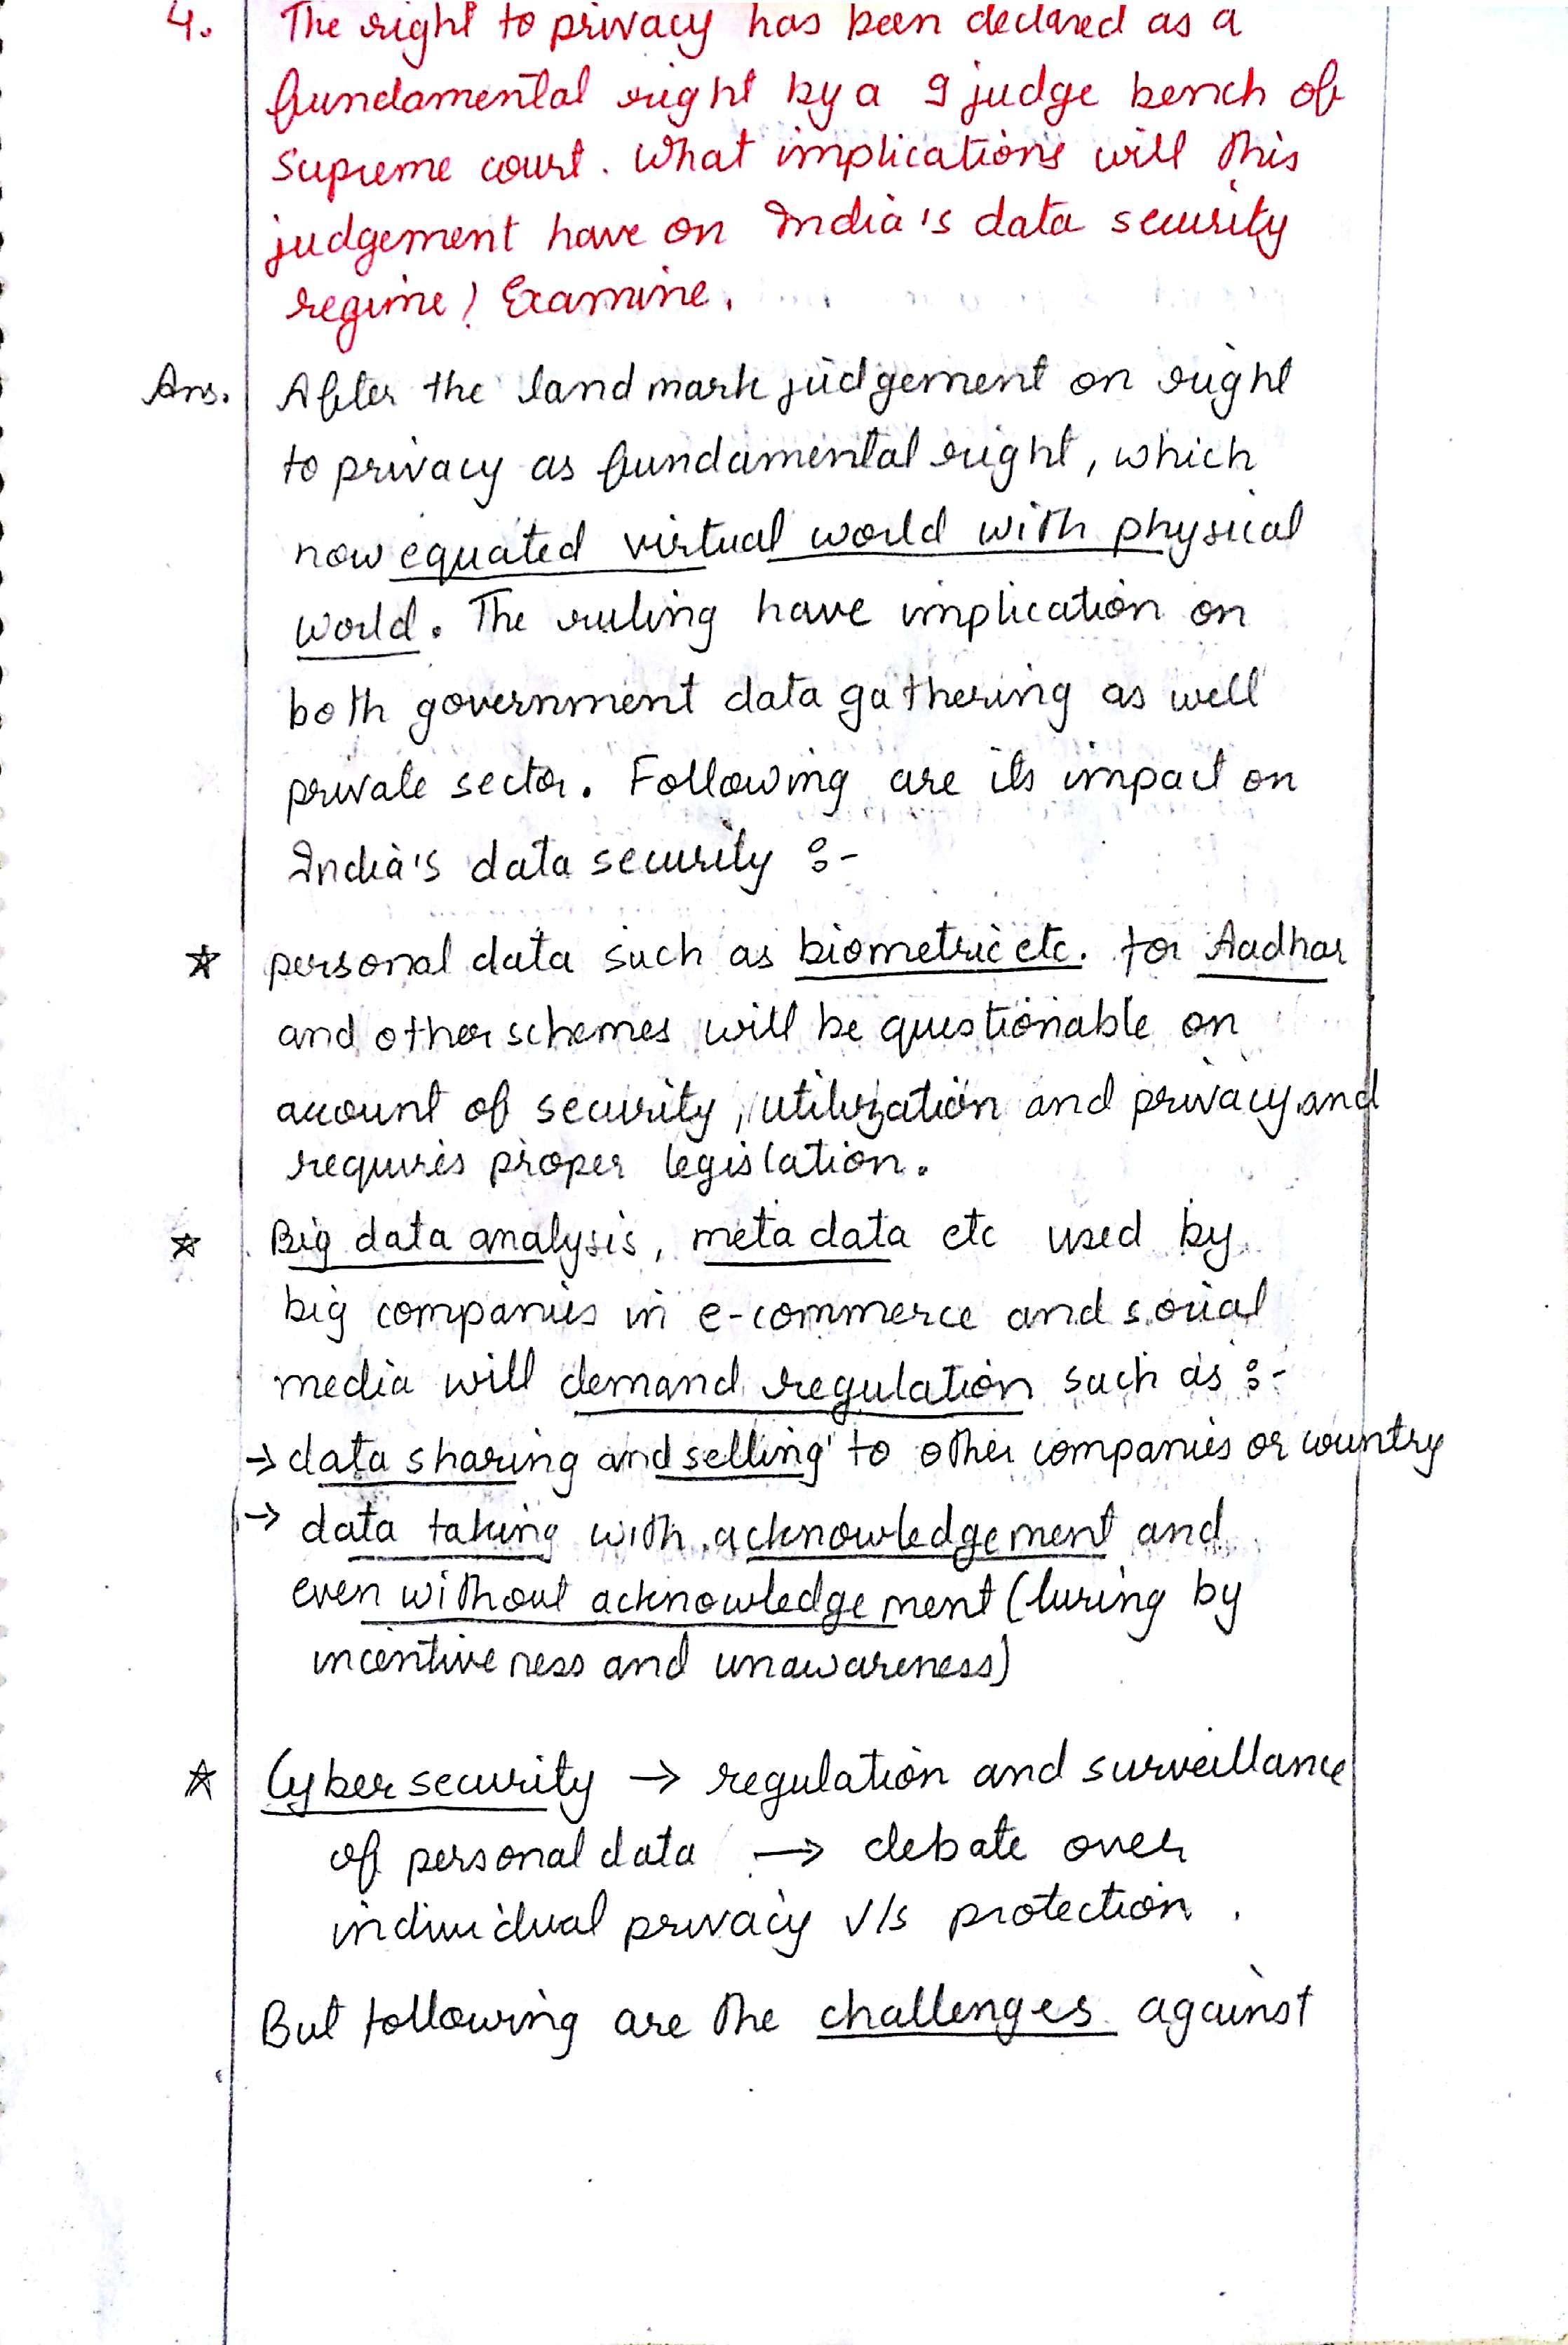 4. The right to privacy has been declared as a
fundamental right by a 9 judge bench of
Supreme court. What implications will this
judgement have on India's data security
regime? Examine.
Ans. After the landmark judgement on right
to privacy as fundamental right, which
now equated virtual world with physical
world. The ruling have implication on
both government data gathering as well
private sector. Following are its impact on
India's data security :-
☆ personal data such as biometric etc. for Aadhar
and other schemes will be questionable on
account of security, utilization and privacy and
requires proper legislation.
☆ Big data analysis, meta data etc used by
big companies in e-commerce and social
media will demand regulation such as :-
→ data sharing and selling to other companies or country
→ data taking with acknowledgement and
even without acknowledgement (luring by
incentiveness and unawareness)
☆ Cyber security → regulation and surveillance
of personal data → debate over
individual privacy v/s protection.
But following are the challenges against